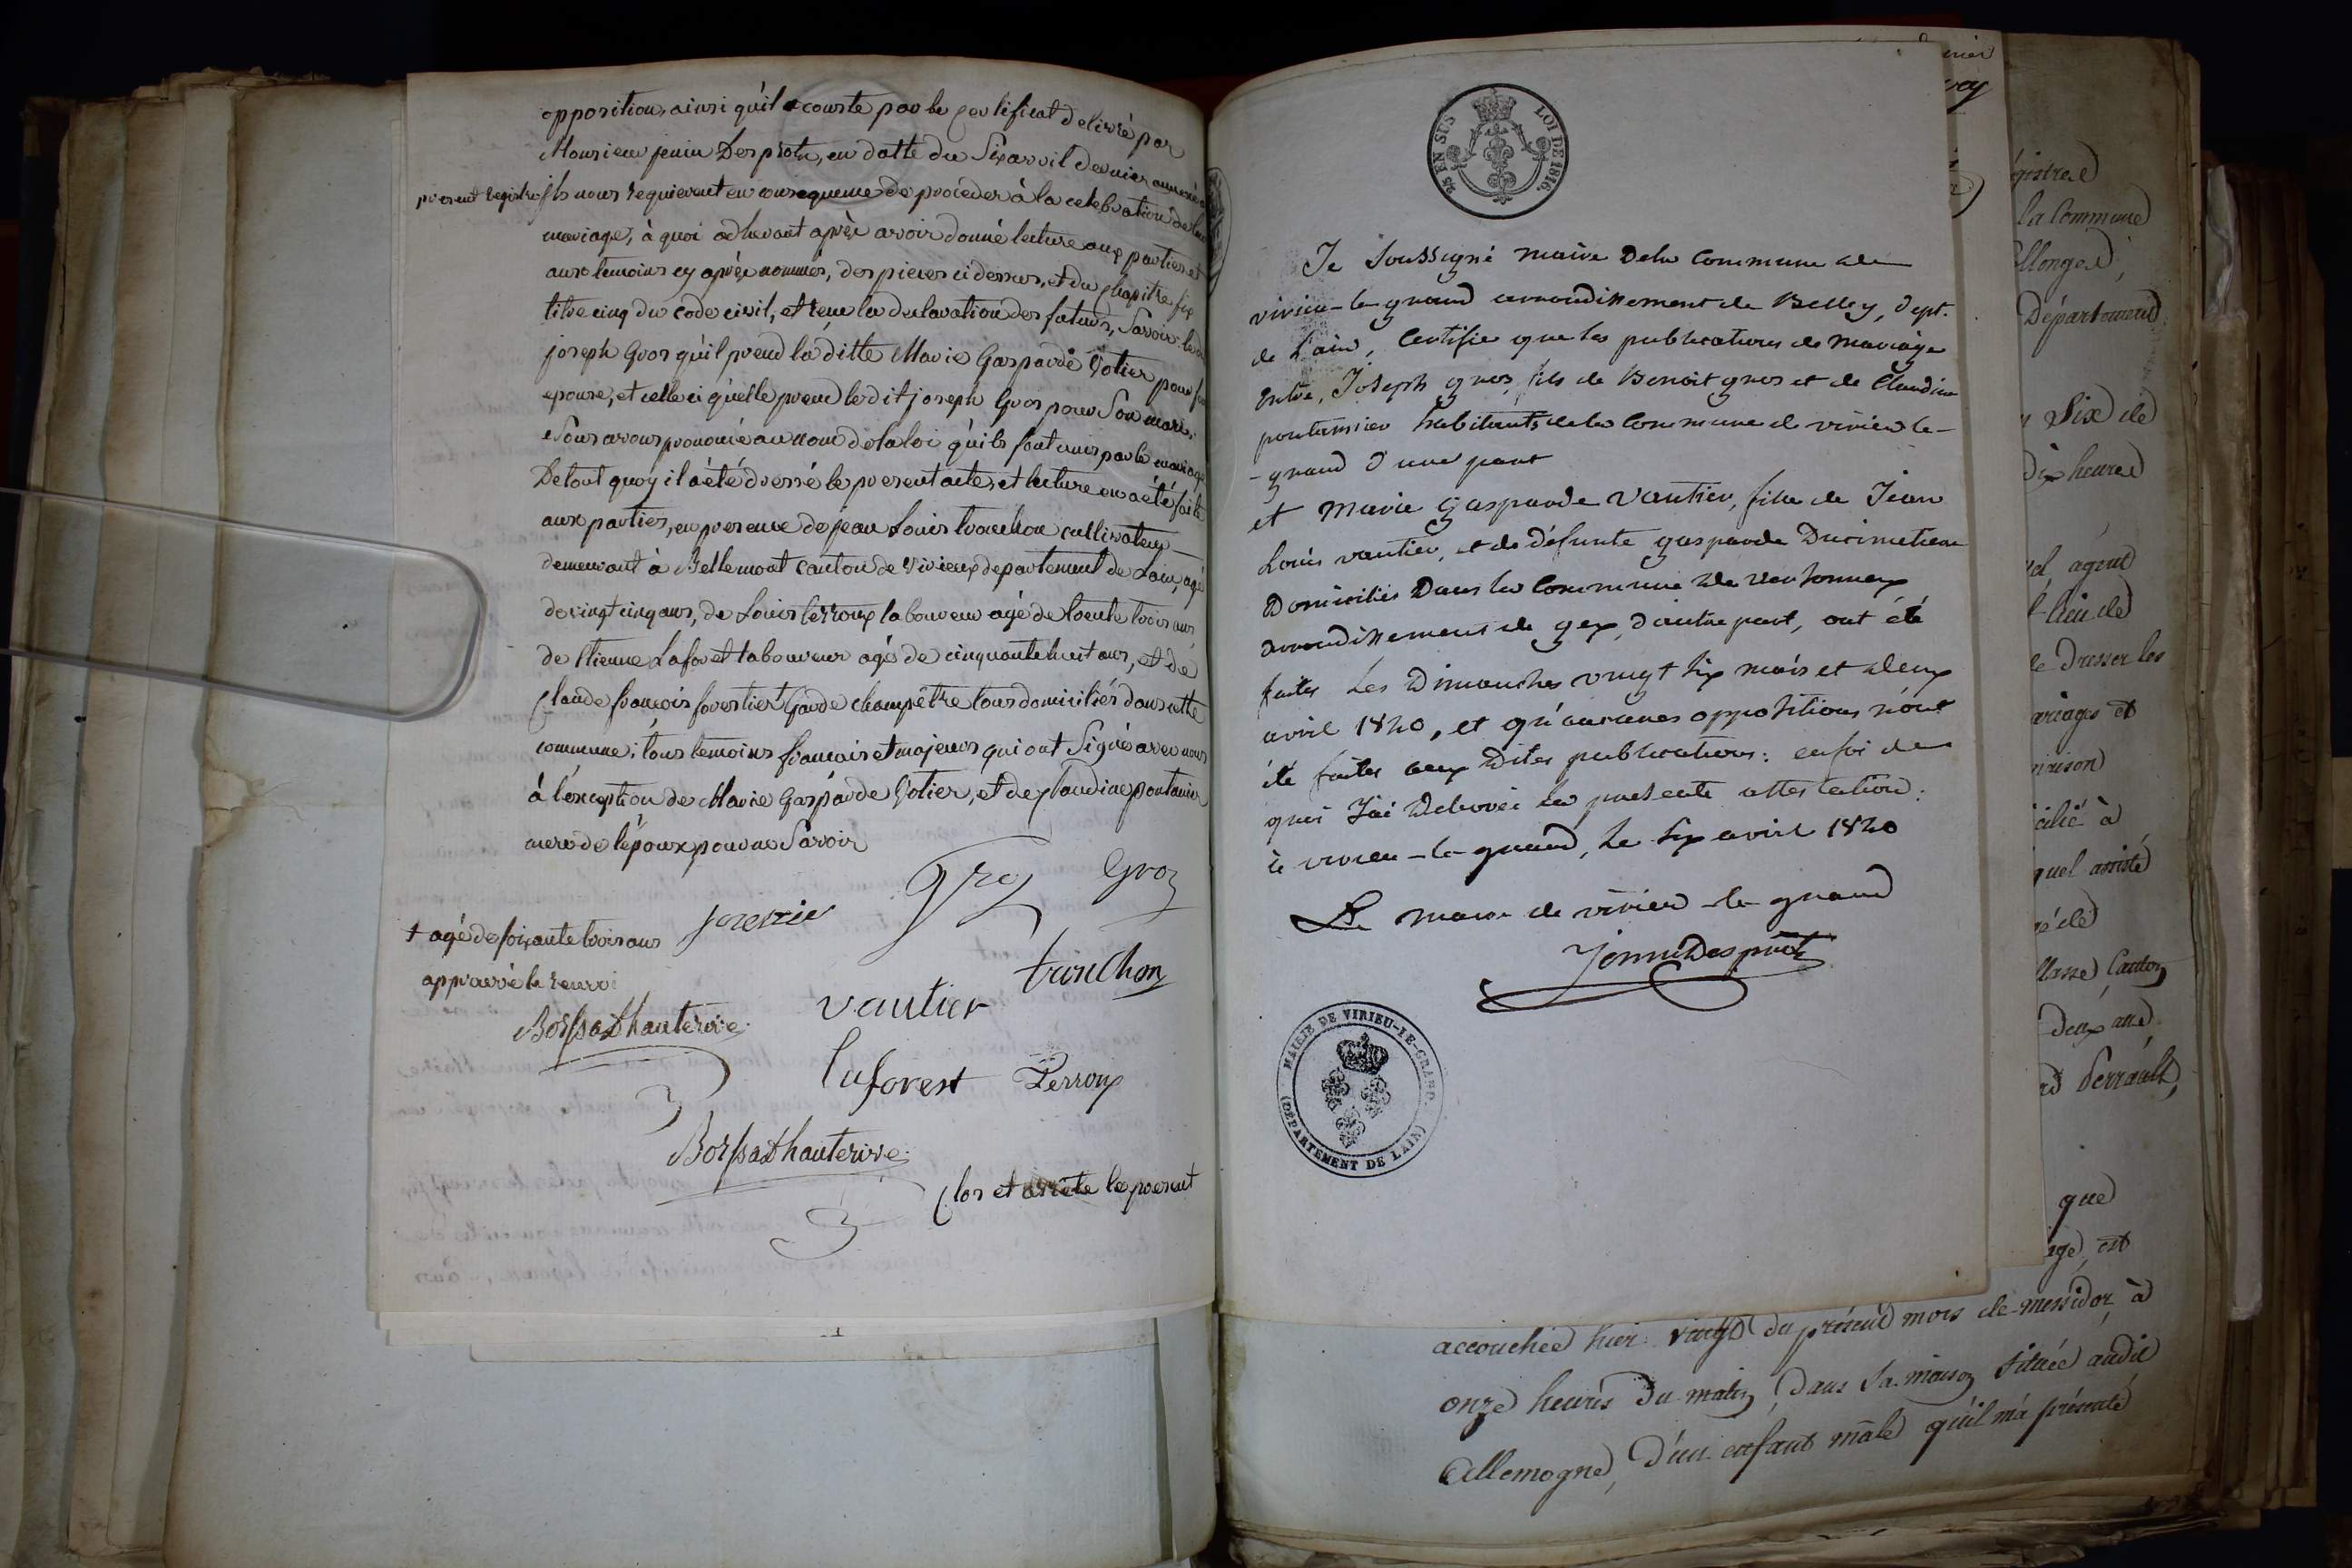 opposition, ainsi qu'il conste par le certificat delivré par
Monsieur jenin Desprots, en datte du Six avril dernier annexé a
present registre ils nous requierent en consequence de proceder à la celebration de leur
mariage, à quoi adherant après avoir donné lecture aux parties et
aux temoins cy après nommés, des pieces ci dessus, et du chapitre six
titre cinq du code civil, et reçu la declaration des futurs, Savoir le dit
joseph Gros qu'il prend la ditte Marie Gasparde Votier pour Son
epouse, et celle ci qu'elle prend le dit joseph Gros pour Son mari,
Nous avons prononcé au nom de la loi qu'ils sont unis par le mariage
De tout quoy il a été dressé le present acte, et lecture en a été faite
aux parties, en presence de jean Louis tranchon cultivateur
demeurant à Bellemont canton de Virieux departement de Lain, agé
de vingt cinq ans, de Louis Perroux laboureur agé de trente trois ans
de Etienne Laforet laboureur agé de cinquante huit ans, et de
Claude françois forestier + Garde champêtre tous domiciliés dans cette
commune; tous temoins français et majeurs qui ont Signé avec nous
à l'exception de Marie Gasparde Votier, et de Claudine pontanier
mere de l'époux pour ne Savoir
Gros Groz
forestier
+ agé de soixante trois ans
tranchon
approuvé le renvoi
vautier
Borssat Dhauterive
laforest Perroux
Borssat Dhauterive
Clos et arrêté le present
25 EN SUS LOI DE 1816.
Je Soussigné maire dela commune de
virieu-le-grand arrondissement de Belley, dept.
de L'ain, Certifie que les publications de mariage
Entre, Joseph gros, fils de Benoit gros et de Claudine
pontannier habitants de la Commune de virieu le-
-grand d'une part
et Marie gasparde vautier, fille de Jean
Louis vautier, et de défunte gasparde Ducimetiere
Domiciliés Dans la Commune de versonnex
arrondissement de gex, d'autre part, ont été
faites Les Dimanches vingt six mars et deux
avril 1820, et qu'aucunes oppositions n'ont
été faites aux Dites publications: en foi de
quoi J'ai Délivré la présente attestation.
à virieu-le-grand, le six avril 1820
Le maire de virieu-le-grand
MAIRIE DE VIRIEU-LE-GRAND. (DÉPARTEMENT DE L'AIN)
la Commune
Département
Six de
dix heures
agent
de Dresser les
mariages et
quel assisté
Canton
deux ans
Perrault,
que
est
accouchée hier vingt du présent mois de messidor, à
onze heures du matin, dans sa maison située audit
allemogne, d'un enfant mâle qu'il m'a présenté